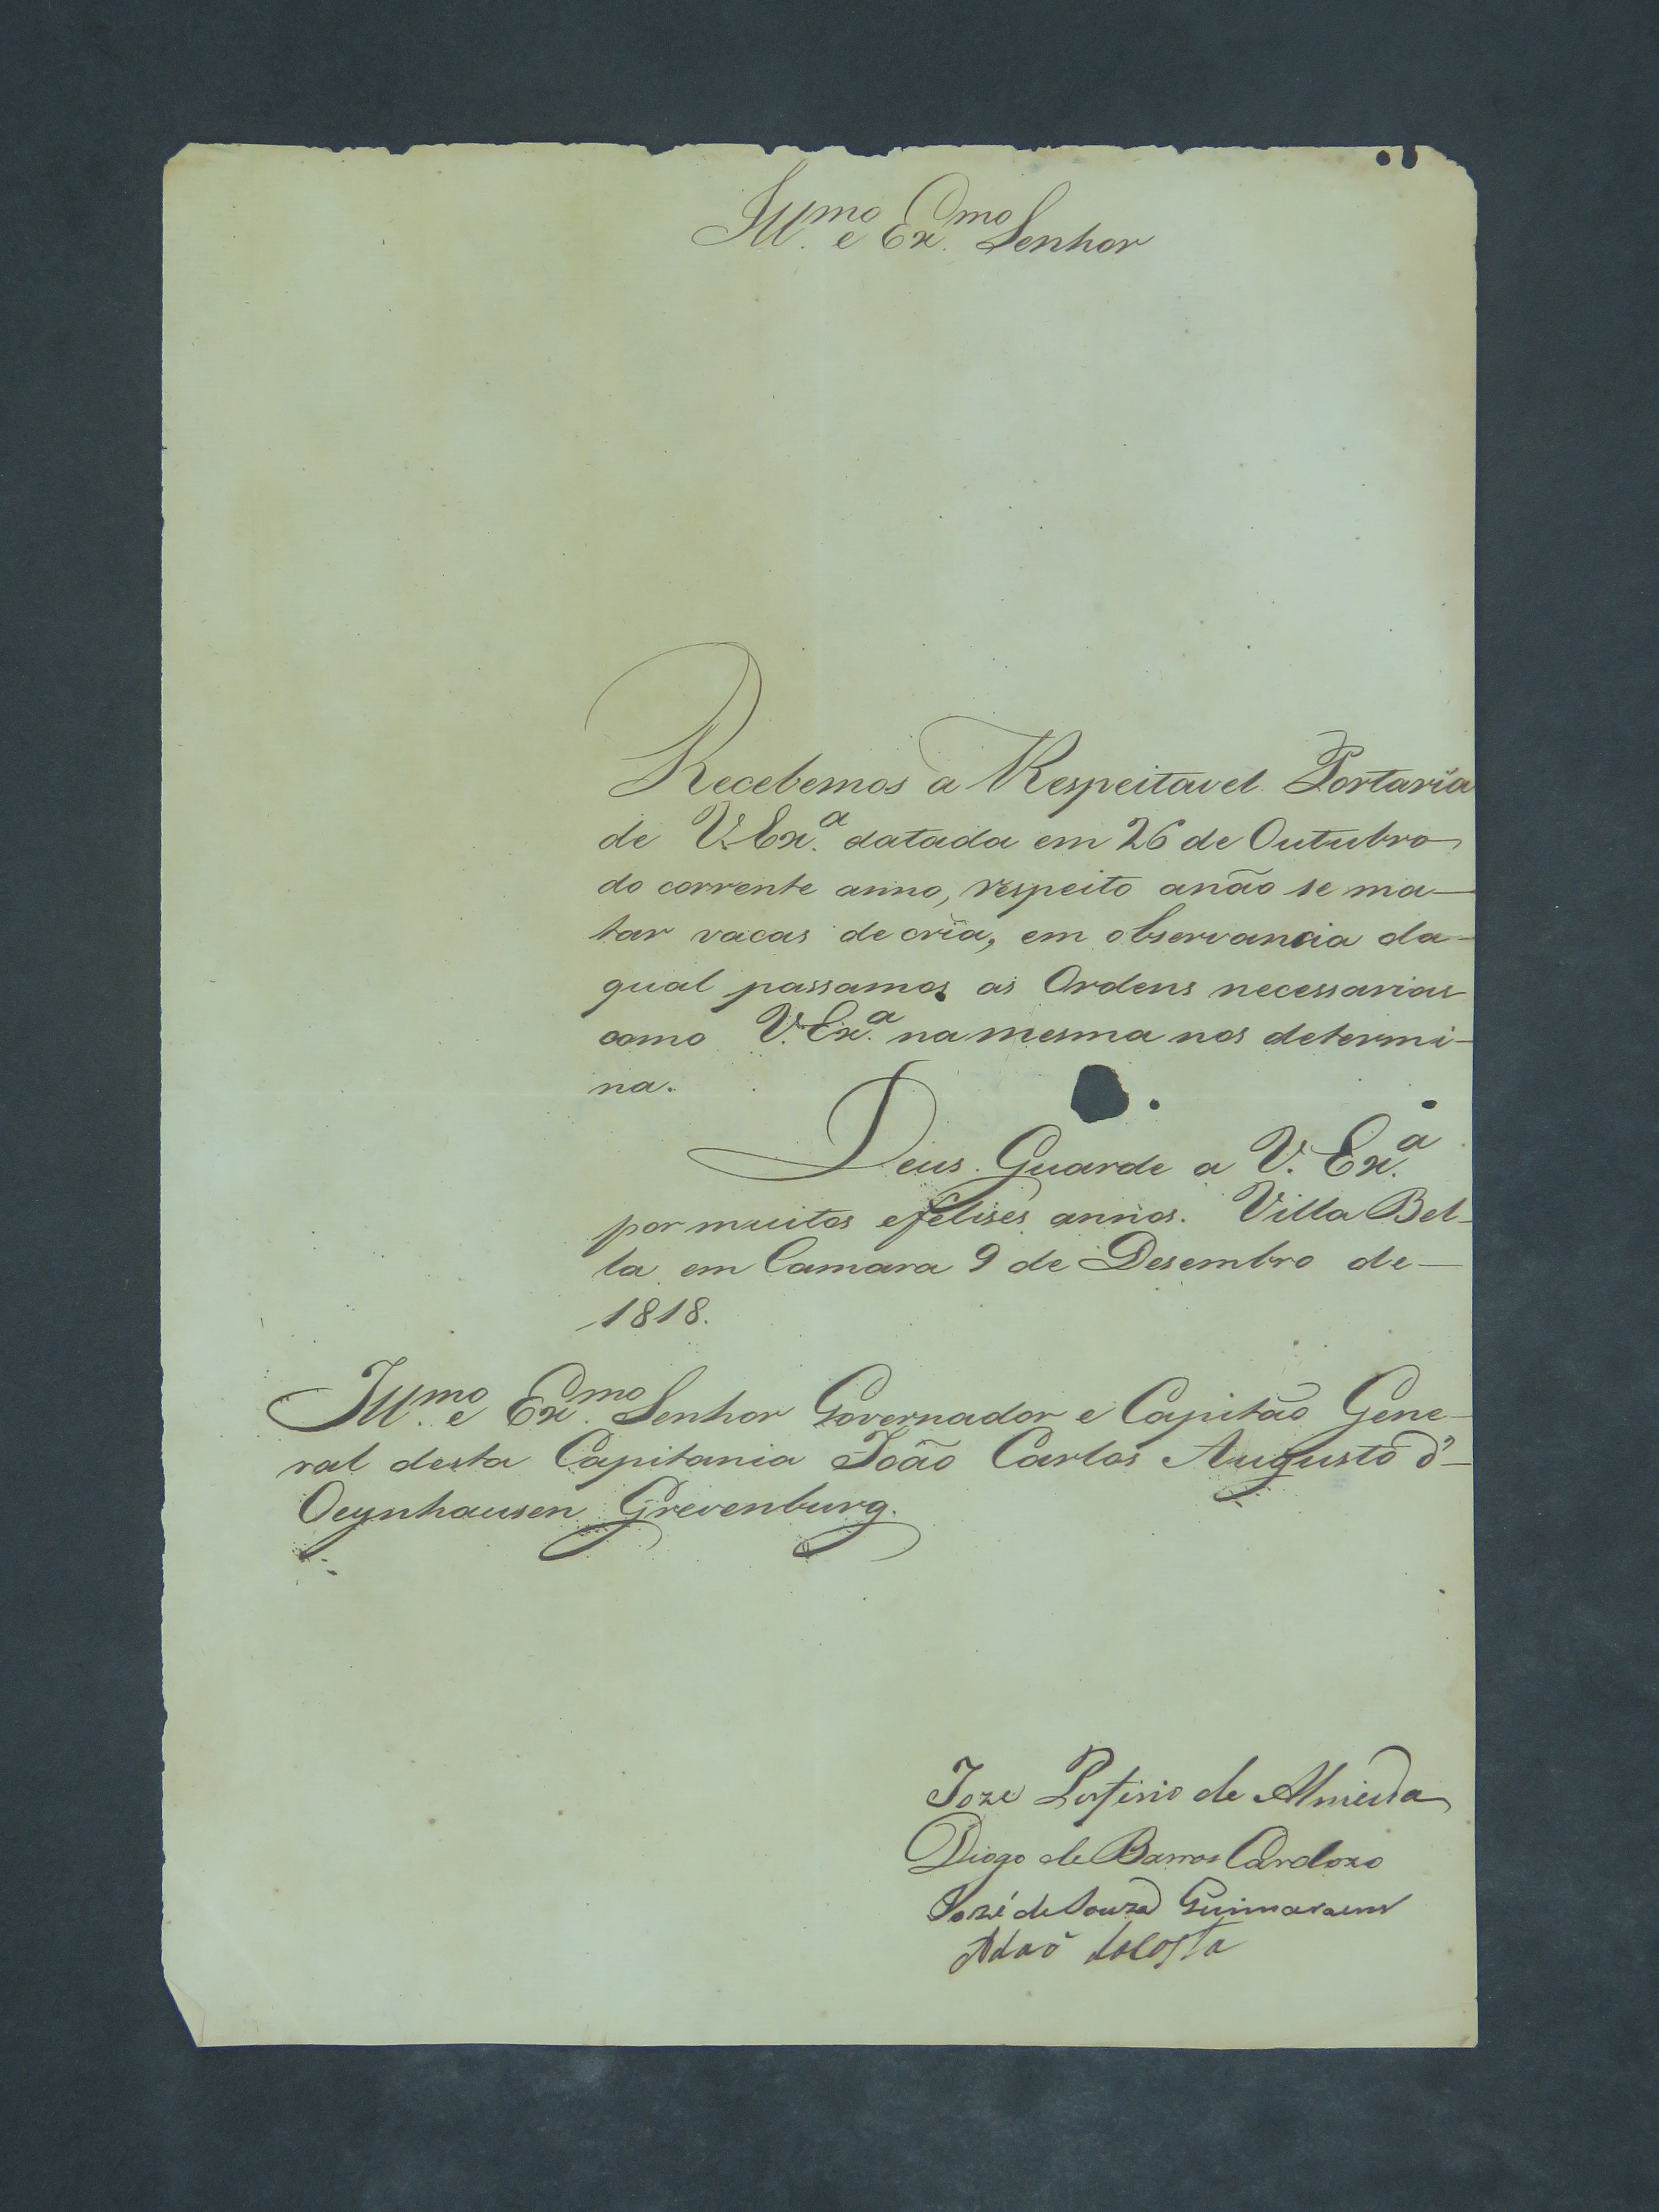 Ill.mo e Ex.mo Senhor
Recebemos a Respeitavel Portaria
de V. Ex.a datada em 26 de Outubro
do corrente anno, respeito anão se ma-
tar vacas de cria, em observancia da-
qual passamos as Ordens necessarias
como V. Ex.a na mesma nos determi-
na.
Deus Guarde a V. Ex.a
por muitos efelises annos. Villa Bel-
la em Camara 9 de Desembro de
1818.
Ill.mo e Ex.mo Senhor Governador e Capitão Gene-
ral desta Capitania João Carlos Augusto d'
Oeynhausen Grevenburg.
Joze Porfirio de Almeida
Diogo de Barros Cardozo
José de Souza Guimaraens
Adaõ daCosta